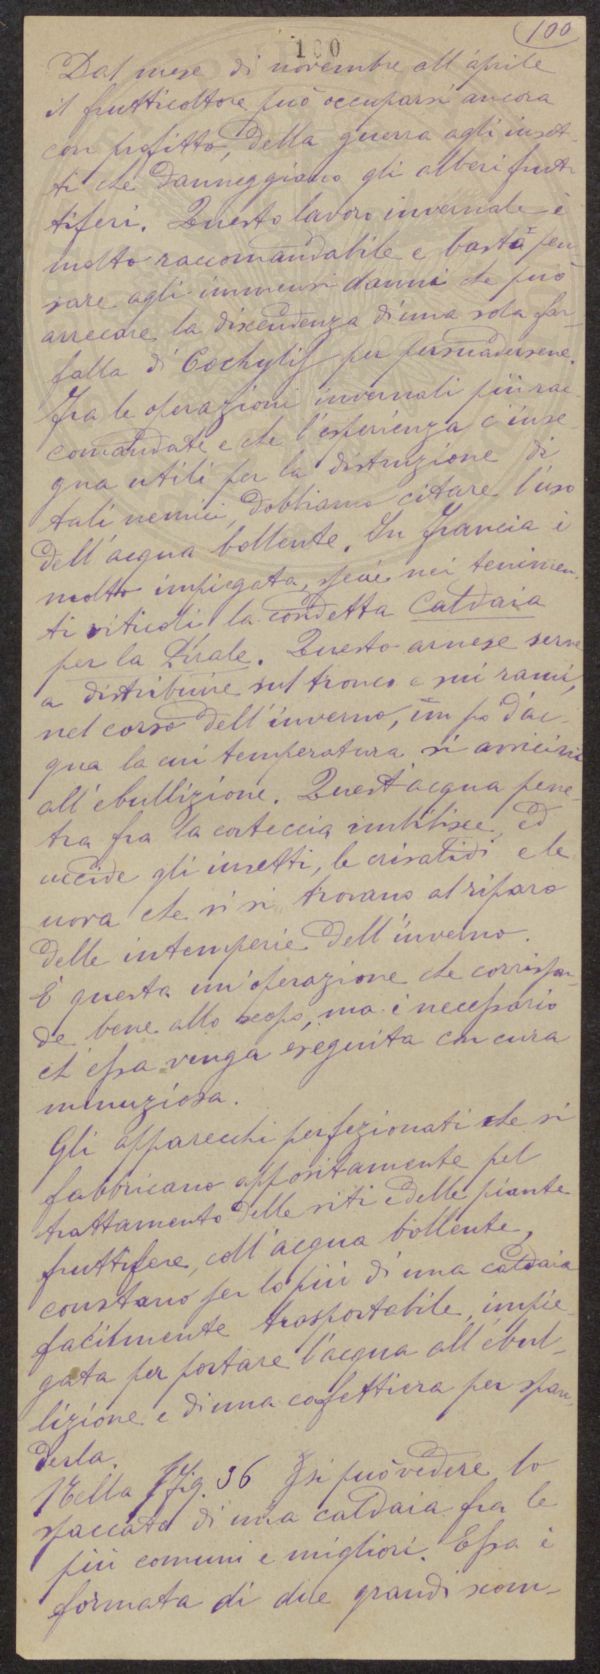 100
100
Dal mese di novembre all'aprile
il frutticoltore può occuparsi ancora
con profitto, della guerra agli inset-
ti che danneggiano gli alberi frut-
tiferi. Questo lavoro invernale è
molto raccomandabile e basta pen-
sare agli immensi danni che può
arrecare la discendenza d'una sola far-
falla di Cochylis per persuadersene.
Fra le operazioni invernali più rac-
comandate e che l'esperienza c'inse-
gna utili per la distruzione di
tali nemici, dobbiamo citare l'uso
dell'acqua bollente. In Francia è
molto impiegata, specie nei tenimen-
ti viticoli la cosidetta Caldaia
per la Pirale. Questo arnese serve
a distribuire sul tronco e sui rami,
nel corso dell'inverno, un po d'ac-
qua la cui temperatura si avvicina
all'ebullizione. Quest'acqua pene-
tra fra la corteccia imbibisce, ed
uccide gli insetti, le crisalidi e le
uova che vi si trovano al riparo
delle intemperie dell'inverno.
È questa un'operazione che corrispon-
de bene allo scopo, ma è necessario
ch'essa venga eseguita con cura
minuziosa.
Gli apparecchi perfezionati che si
fabbricano appositamente pel
trattamento delle viti e delle piante
fruttifere, coll'acqua bollente,
constano per lo più di una caldaia
facilmente trasportabile, impie-
gata per portare l'acqua all'ebul-
lizione e di una caffettiera per span-
derla.
Nella Fig. 36 si può vedere lo
spaccato di una caldaia fra le
più comuni e migliori. Essa è
formata di due grandi scom-